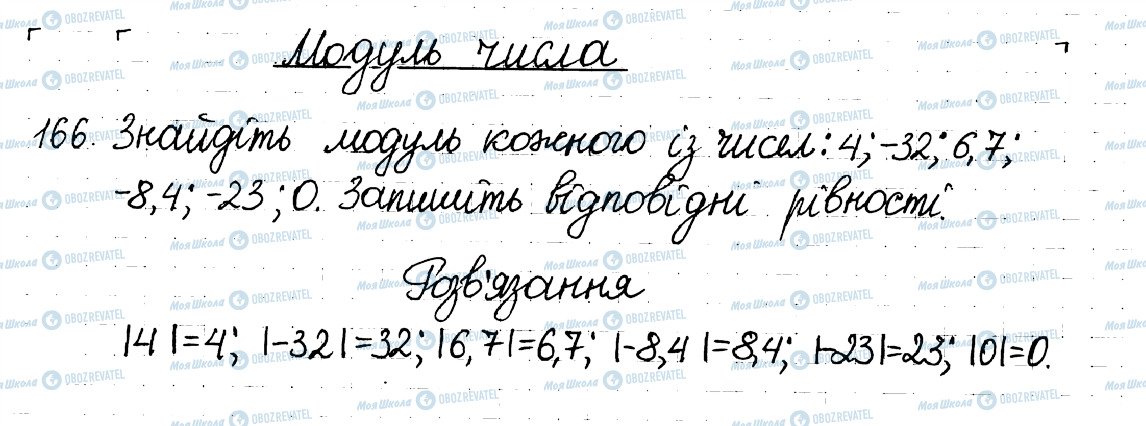 Модуль числа
166. Знайдіть модуль кожного із чисел: 4; -32; 6,7;
-8,4; -23; 0. Запишіть відповідні рівності.
Розв'язання
|4|=4; |-32|=32; |6,7|=6,7; |-8,4|=8,4; |-23|=23; |0|=0.